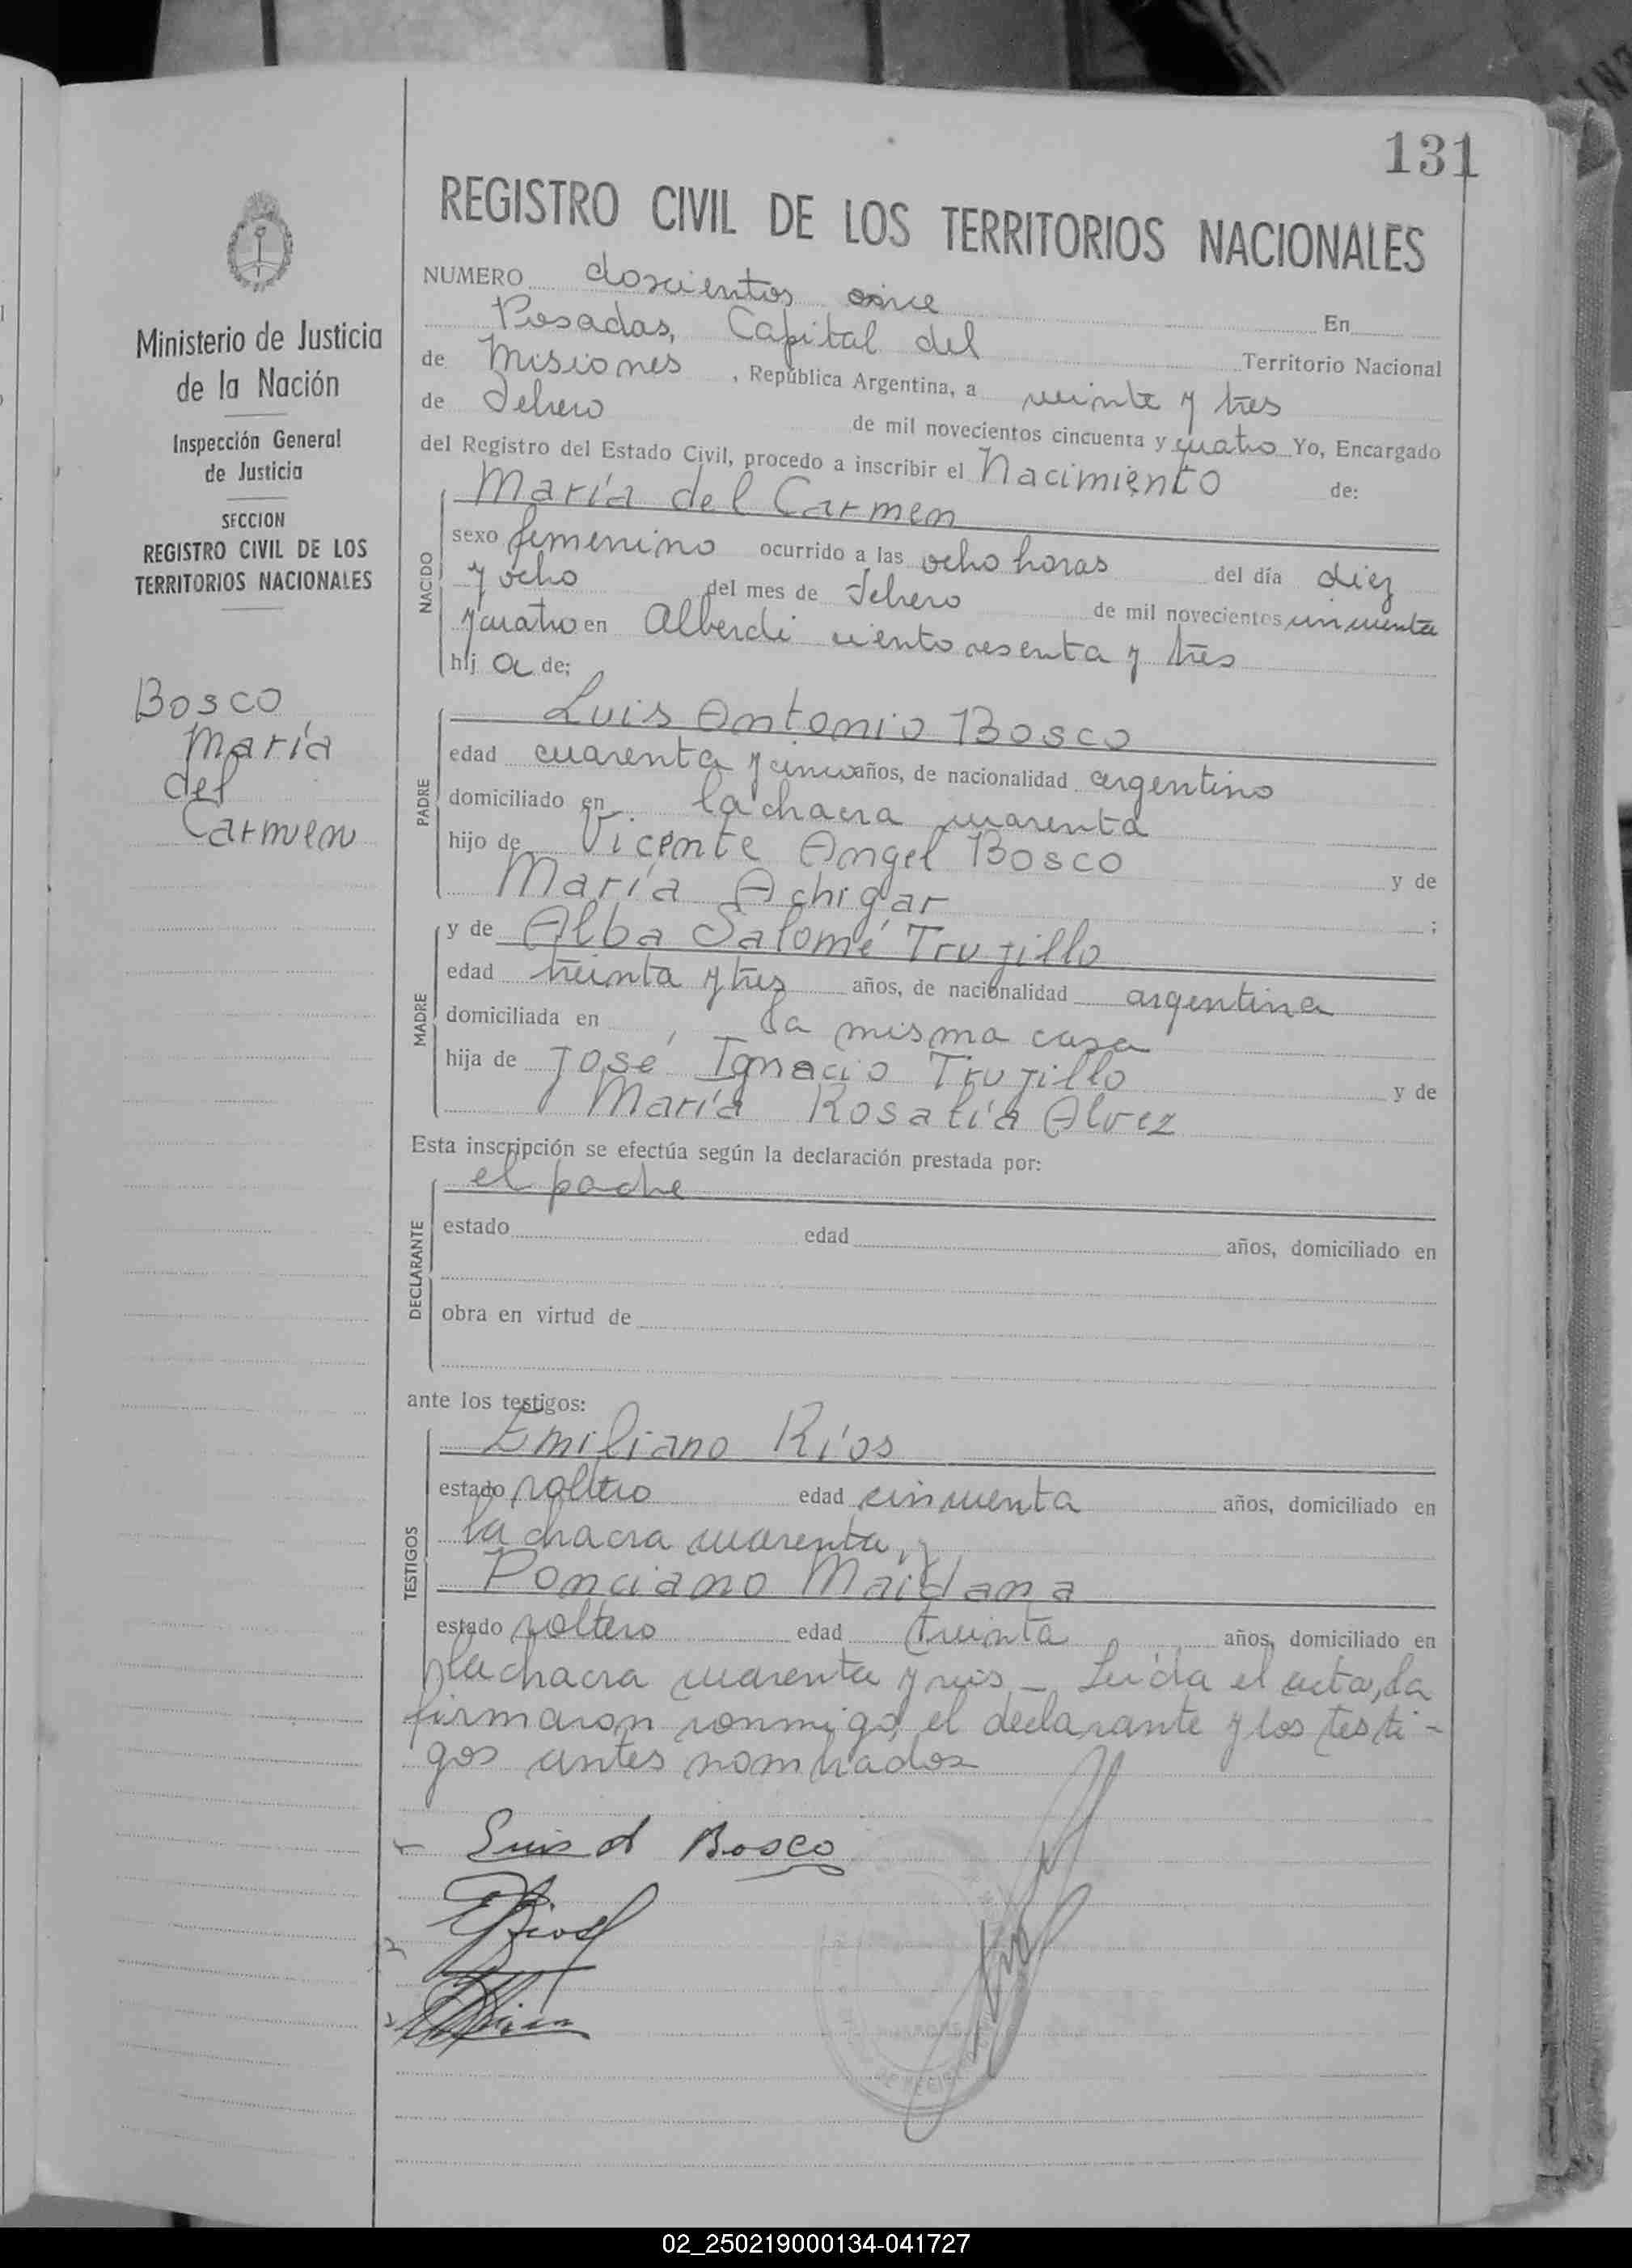 131
Ministerio de Justicia
de la Nación
Inspección General
de Justicia
SECCION
REGISTRO CIVIL DE LOS
TERRITORIOS NACIONALES
Bosco
María
del
Carmen
REGISTRO CIVIL DE LOS TERRITORIOS NACIONALES
NUMERO doscientos once En
Posadas, Capital del Territorio Nacional
de Misiones, República Argentina, a veinte y tres
de Febrero de mil novecientos cincuenta y cuatro Yo, Encargado
del Registro del Estado Civil, procedo a inscribir el Nacimiento de:
NACIDO
María del Carmen
sexo femenino ocurrido a las ocho horas del día diez
y ocho del mes de Febrero de mil novecientos cincuenta
y cuatro en Alberdi ciento sesenta y tres
hij a de:
PADRE
Luis Antonio Bosco
edad cuarenta y cinco años, de nacionalidad argentino
domiciliado en la chacra cuarenta
hijo de Vicente Angel Bosco y de
María Achigar ;
MADRE
y de Alba Salomé Trujillo
edad treinta y tres años, de nacionalidad argentina
domiciliada en la misma casa
hija de José Ignacio Trujillo y de
María Rosalía Alvez
Esta inscripción se efectúa según la declaración prestada por:
DECLARANTE
el padre
estado edad años, domiciliado en
obra en virtud de
ante los testigos:
TESTIGOS
Emiliano Ríos
estado soltero edad cincuenta años, domiciliado en
la chacra cuarenta, y
Ponciano Maidana
estado soltero edad treinta años, domiciliado en
la chacra cuarenta y seis - Leída el acta, la
firmaron conmigo, el declarante y los testi-
gos antes nombrados
Luis A Bosco
ERíos
02_250219000134-041727